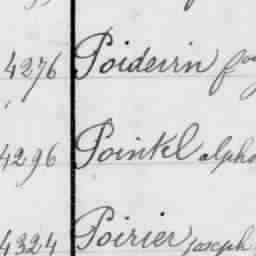 4276 Poiderin
4296 Poinkel alpho
4324 Poirier joseph